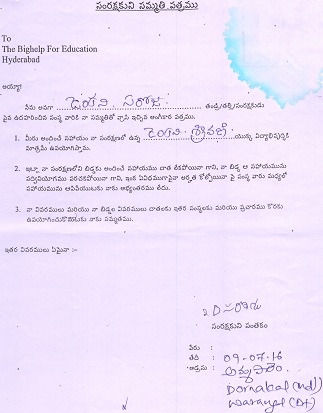 సంరక్షకుని సమ్మతి పత్రము
To
The Bighelp For Education
Hyderabad
అయ్యా!
నేను అనగా సరోజ తండ్రి/తల్లి/సంరక్షకుడు
పైన ఉదహరించిన సంస్థ వారికి నా సమ్మతితో వ్రాసి ఇచ్చిన అంగీకార పత్రము.
1. మీరు అందించే సహాయం నా సంరక్షణలో ఉన్న యొక్క విద్యాభివృద్ధికి
మాత్రమే ఉపయోగిస్తాను.
2. ఇట్లా నా సంరక్షణలోని బిడ్డకు అందించే సహాయము దాత లేకపోయినా గాని, నా బిడ్డ ఆ సహాయమును
సద్వినియోగము పరచకపోయినా గాని, ఇంక ఏవిధముగానైనా అర్హత కోల్పోయినా పై సంస్థ వారు మధ్యలో
సహాయమును ఆపివేయుటకు నాకు అభ్యంతరము లేదు.
3. నా వివరములు మరియు నా బిడ్డల వివరములు దాతలకు ఇతర సంస్థలకు మరియు ప్రచారము కొరకు
ఉపయోగించుకొనుటకు నాకు సమ్మతము.
ఇతర వివరములు ఏమైనా :-
సంరక్షకుని సంతకం
పేరు :
తేది : 09-07-16
అడ్రసు :
Dornakal (md)
Warangal (Dt)